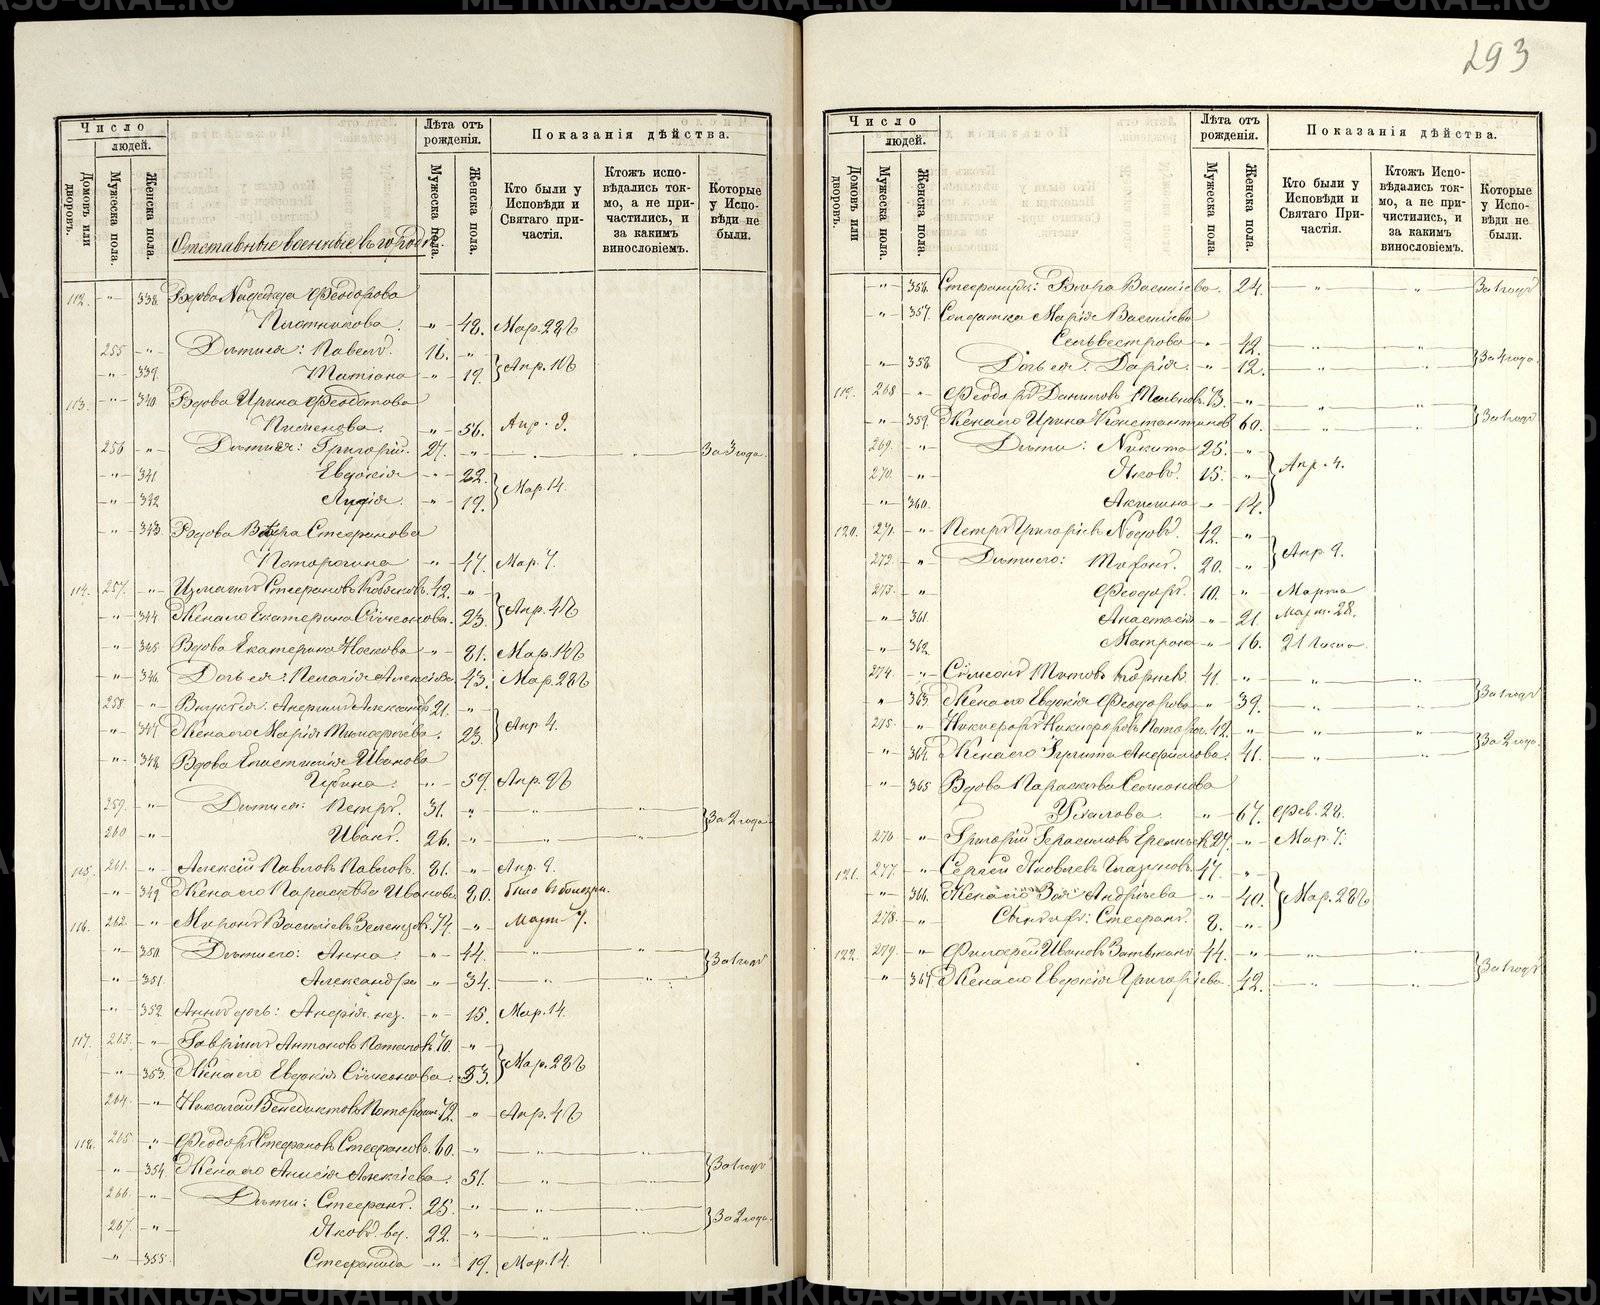 293
Число
людей.
Лѣта отъ рожденія.
Показанія дѣйства.
Домовъ или дворовъ.
Мужеска пола.
Женска пола.
Мужеска пола.
Женска пола.
Кто были у Исповѣди и Святаго причастія.
Ктожъ исповѣдались токмо, а не причастились, и за какимъ винословіемъ.
Которые у Исповѣди не были.
Отставные военные въ городѣ.
112. -"- 338. Вдова Надежда Феодорова
Плотникова. -"- 48. Мар. 28
255 -"- Дѣти ея: Павелъ. 16. -"-
-"- 339. Татіана -"- 19. Апр. 10
113. -"- 340 Вдова Ирина Феодотова
Пименова. -"- 56. Апр. 9.
256 -"- Дѣти ея: Григорій. 27. -"- За 3 года.
-"- 341 Евдокія -"- 22.
-"- 342 Лидія. -"- 19. Мар. 14.
-"- 343 Вдова Вѣра Стефанова
Поторочина -"- 47. Мар. 7.
114. 257. -"- Измаилъ Стефановъ 42. -"-
-"- 344 Жена его Екатерина Сѵмеонова. 23. Апр. 4
-"- 345 Вдова Екатерина Носкова -"- 81. Мар. 14
-"- 346 Дочь ея: Пелагія Алексѣева 43. Мар. 28
258 -"- Внукъ ея: 21. -"-
-"- 347 Жена его Марія Тимофѣева. 23. Апр. 4.
-"- 348 Вдова Епистимія Иванова
-"- 59. Апр. 9
259. -"- Дѣти ея: Петръ. 31. -"-
260 -"- Иванъ. 26. -"- За 2 года.
115. 261. -"- Алексѣй Павловъ Павловъ. 81. -"- Апр. 9.
-"- 349 Жена его Параскева Иванова 80.
116. 262. -"- Миронъ Васильевъ Зеленцовъ. 74. -"- Март 7.
-"- 350 Дѣти его: Анна. -"- 44.
-"- 351. Александра -"- 34. За 1 годъ
-"- 352. Анны дочь: -"- 15. Мар. 14.
117. 263. -"- Гавріилъ Антоновъ Потаповъ 70. -"-
-"- 353. Жена его Евдокія Сѵмеонова. 53. Мар. 28
264. -"- Николай Бенедиктовъ 72. -"- Апр. 4
118. 265 -"- Феодоръ Стефановъ Стефановъ. 60. -"-
-"- 354. Жена его Анисія Алексѣева. 51. За 1 годъ
266. -"- Дѣти: Стефанъ. 25. -"-
267. -"- Яковъ вд. 22. -"- За 2 года.
-"- 355. Стефанида -"- 19. Мар. 14.
Число
людей.
Лѣта отъ рожденія.
Показанія дѣйства.
Домовъ или дворовъ.
Мужеска пола.
Женска пола.
Мужеска пола.
Женска пола.
Кто были у Исповѣди и Святаго Причастія.
Ктож Исповѣдались токмо, а не причистились, и за какимъ винословіемъ.
Которые у Исповѣди не были.
-"- 356. Вѣра Васильева. 24. За 1 годъ
-"- 357. Солдатка Марія Васильева
Сельвестрова -"- 42.
-"- 358 Дочь ея: Дарія. -"- 12. За 4 года.
119. 268 -"- Феодоръ Даниловъ 73. -"-
-"- 359. Жена его Ирина Константинов 60. За 1 годъ
269. -"- Дѣти: Никита 25. -"-
270. -"- Яковъ. 15. -"- Апр. 4.
-"- 360. Акилина -"- 14.
120. 271. -"- Петръ Григорьевъ 42. -"-
272. -"- Дѣти его: 20. -"- Апр. 9.
273. -"- Феодоръ. 10. -"- Марта
-"- 361. Анастасія -"- 21. Март. 28.
-"- 362. Матрона -"- 16. 21 числа.
274. -"- Сѵмеонъ Титовъ 41. -"-
-"- 363 Жена его Евдокія Феодорова -"- 39. За 1 годъ
275. -"- Никифоръ Никифоровъ 42. -"-
-"- 364. Жена его 41. За 2 года.
-"- 365 Вдова Параскева Семионова
-"- 67. Фев. 28.
276 -"- Григорій Герасимовъ 27. -"- Мар. 7.
121. 277. -"- Сергѣй Яковлевъ Глазуновъ. 47. -"-
-"- 366. Жена его Зоя Андрѣева -"- 40. Мар. 28
278. -"- Сынъ: Стефанъ. 8. -"-
122. 279. -"- Филофей Ивановъ 44. -"-
-"- 367 Жена его Евдокія Григорьева. 42. За 1 годъ